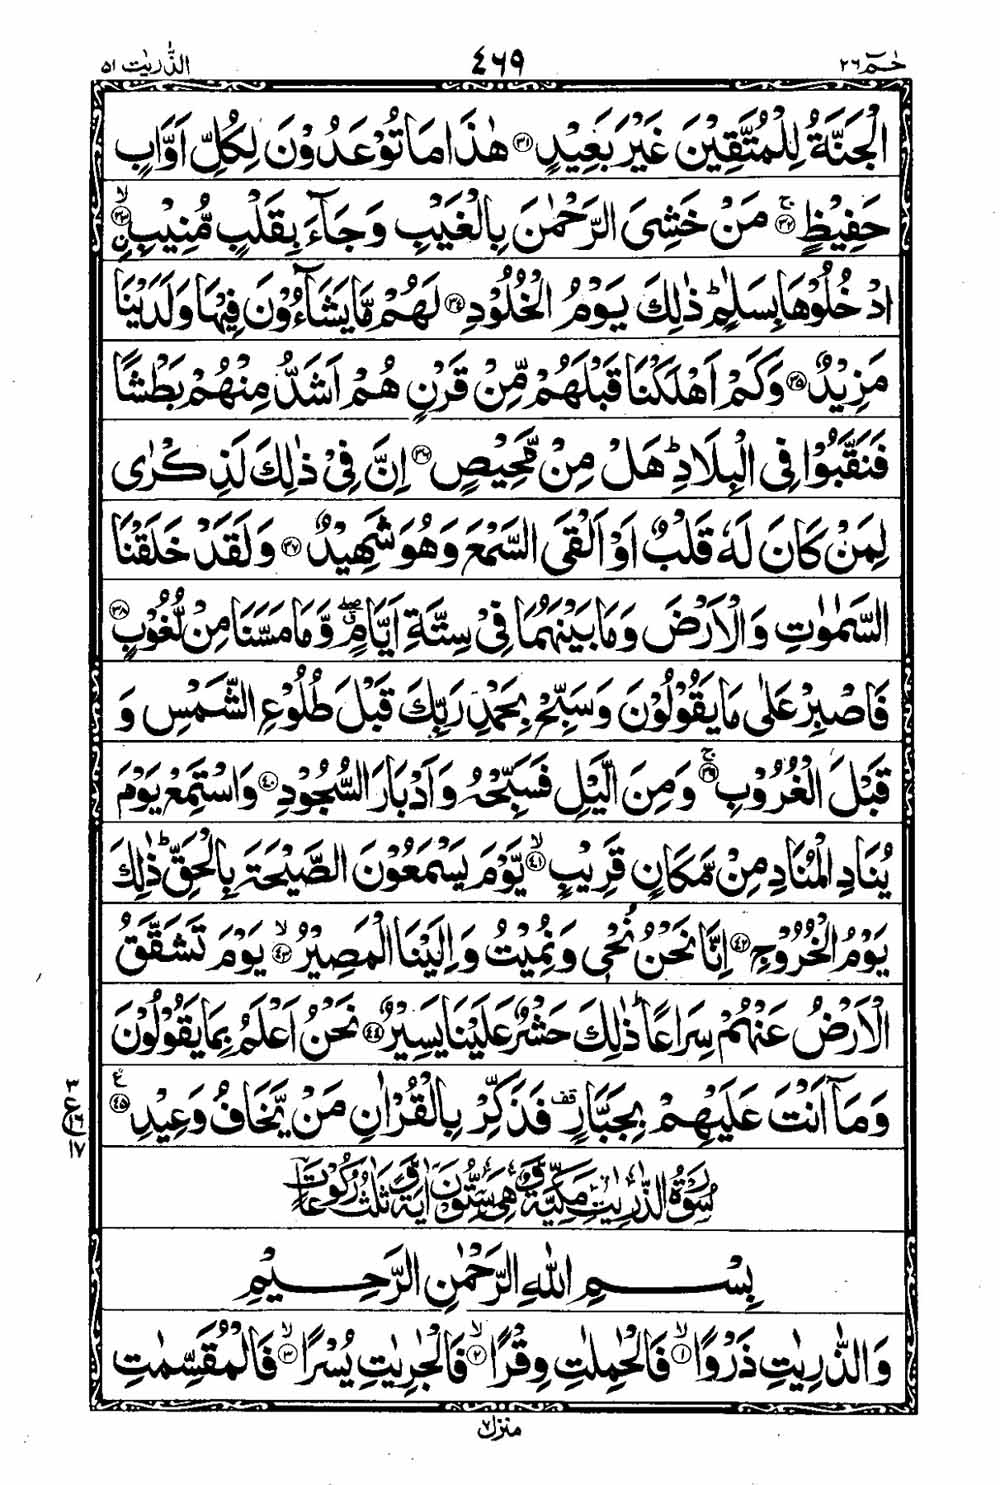 حٰمٓ ٢٦ ٤٦٩ الذّٰرِیٰت ٥١
الْجَنَّةُ لِلْمُتَّقِیْنَ غَیْرَ بَعِیْدٍ ﴿٣١﴾ هٰذَا مَا تُوْعَدُوْنَ لِكُلِّ اَوَّابٍ
حَفِیْظٍ ﴿٣٢﴾ۚ مَنْ خَشِیَ الرَّحْمٰنَ بِالْغَیْبِ وَجَآءَ بِقَلْبٍ مُّنِیْبِ ﴿٣٣﴾ۙ
ادْخُلُوْهَا بِسَلٰمٍؕ ذٰلِكَ یَوْمُ الْخُلُوْدِ ﴿٣٤﴾ لَهُمْ مَّا یَشَآءُوْنَ فِیْهَا وَلَدَیْنَا
مَزِیْدٌ ﴿٣٥﴾ وَكَمْ اَهْلَكْنَا قَبْلَهُمْ مِّنْ قَرْنٍ هُمْ اَشَدُّ مِنْهُمْ بَطْشًا
فَنَقَّبُوْا فِی الْبِلَادِؕ هَلْ مِنْ مَّحِیْصٍ ﴿٣٦﴾ اِنَّ فِیْ ذٰلِكَ لَذِكْرٰی
لِمَنْ كَانَ لَهٗ قَلْبٌ اَوْ اَلْقَی السَّمْعَ وَهُوَ شَهِیْدٌ ﴿٣٧﴾ وَلَقَدْ خَلَقْنَا
السَّمٰوٰتِ وَالْاَرْضَ وَمَا بَیْنَهُمَا فِیْ سِتَّةِ اَیَّامٍ ۖۗ وَّمَا مَسَّنَا مِنْ لُّغُوْبٍ ﴿٣٨﴾
فَاصْبِرْ عَلٰی مَا یَقُوْلُوْنَ وَسَبِّحْ بِحَمْدِ رَبِّكَ قَبْلَ طُلُوْعِ الشَّمْسِ وَ
قَبْلَ الْغُرُوْبِ ﴿٣٩﴾ۚ وَمِنَ الَّیْلِ فَسَبِّحْهُ وَاَدْبَارَ السُّجُوْدِ ﴿٤٠﴾ وَاسْتَمِعْ یَوْمَ
یُنَادِ الْمُنَادِ مِنْ مَّكَانٍ قَرِیْبٍ ﴿٤١﴾ۙ یَّوْمَ یَسْمَعُوْنَ الصَّیْحَةَ بِالْحَقِّؕ ذٰلِكَ
یَوْمُ الْخُرُوْجِ ﴿٤٢﴾ اِنَّا نَحْنُ نُحْیٖ وَنُمِیْتُ وَاِلَیْنَا الْمَصِیْرُ ﴿٤٣﴾ۙ یَوْمَ تَشَقَّقُ
الْاَرْضُ عَنْهُمْ سِرَاعًاؕ ذٰلِكَ حَشْرٌ عَلَیْنَا یَسِیْرٌ ﴿٤٤﴾ نَحْنُ اَعْلَمُ بِمَا یَقُوْلُوْنَ
وَمَاۤ اَنْتَ عَلَیْهِمْ بِجَبَّارٍ قف فَذَكِّرْ بِالْقُرْاٰنِ مَنْ یَّخَافُ وَعِیْدِ ﴿٤٥﴾ ع
٣
ع ١٦
١٧
سُوْرَةُ الذّٰرِیٰتِ مَكِّیَّةٌ وَّهِیَ سِتُّوْنَ اٰیَةً وَّثَلٰثُ رُكُوْعَاتٍ
بِسْمِ اللّٰهِ الرَّحْمٰنِ الرَّحِیْمِ
وَالذّٰرِیٰتِ ذَرْوًا ﴿١﴾ۙ فَالْحٰمِلٰتِ وِقْرًا ﴿٢﴾ۙ فَالْجٰرِیٰتِ یُسْرًا ﴿٣﴾ۙ فَالْمُقَسِّمٰتِ
منزل ٧